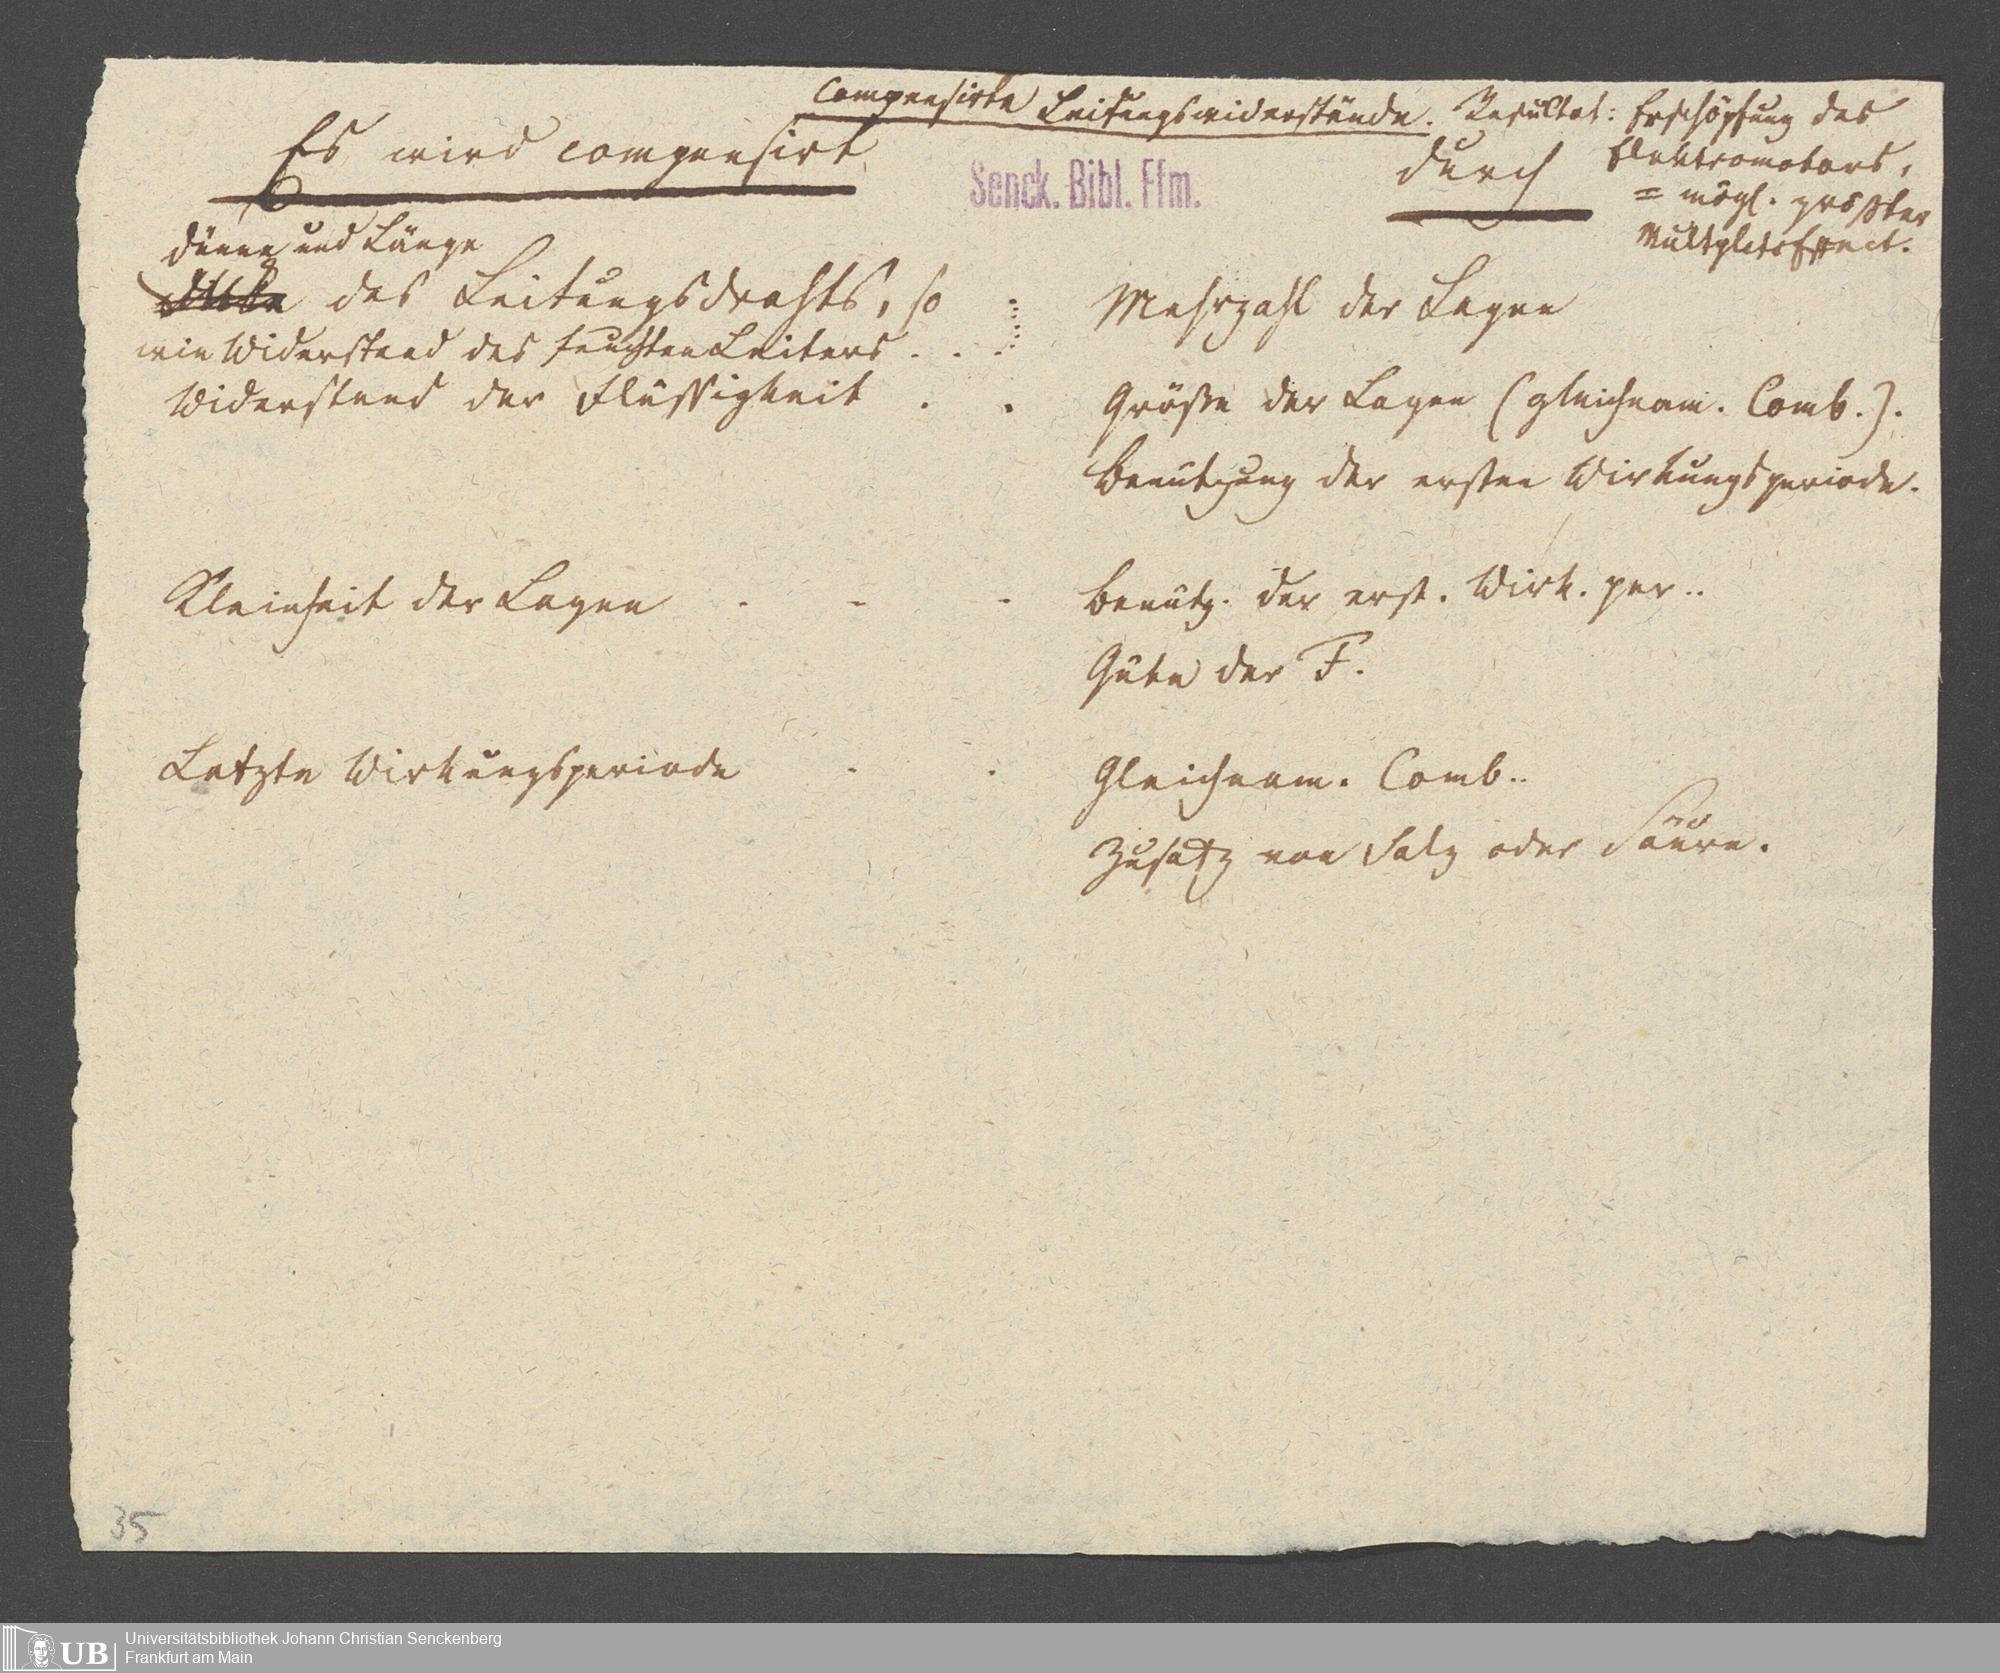 Compensirte Leitungswiderstände. Resultat: Erschöpfung des
Elektromotors,
= mögl. größter
Multplctseffect.
Es wird compensirt
durch
Senck. Bibl. Ffm.
Dünne und Länge
des Leitungsdrahts, so
wie Widerstand des feuchten Leiters . . .
Mehrzahl der Lagen
Widerstand der Flüssigkeit . .
Größe der Lagen (gleichnam. Comb.).
Benutzung der ersten Wirkungsperiode.
Kleinheit der Lagen - - -
Benutz. der erst. Wirk. per..
Güte der F.
Letzte Wirkungsperiode . .
Gleichnam. Comb..
Zusatz von Salz oder Säure.
35
UB
Universitätsbibliothek Johann Christian Senckenberg
Frankfurt am Main